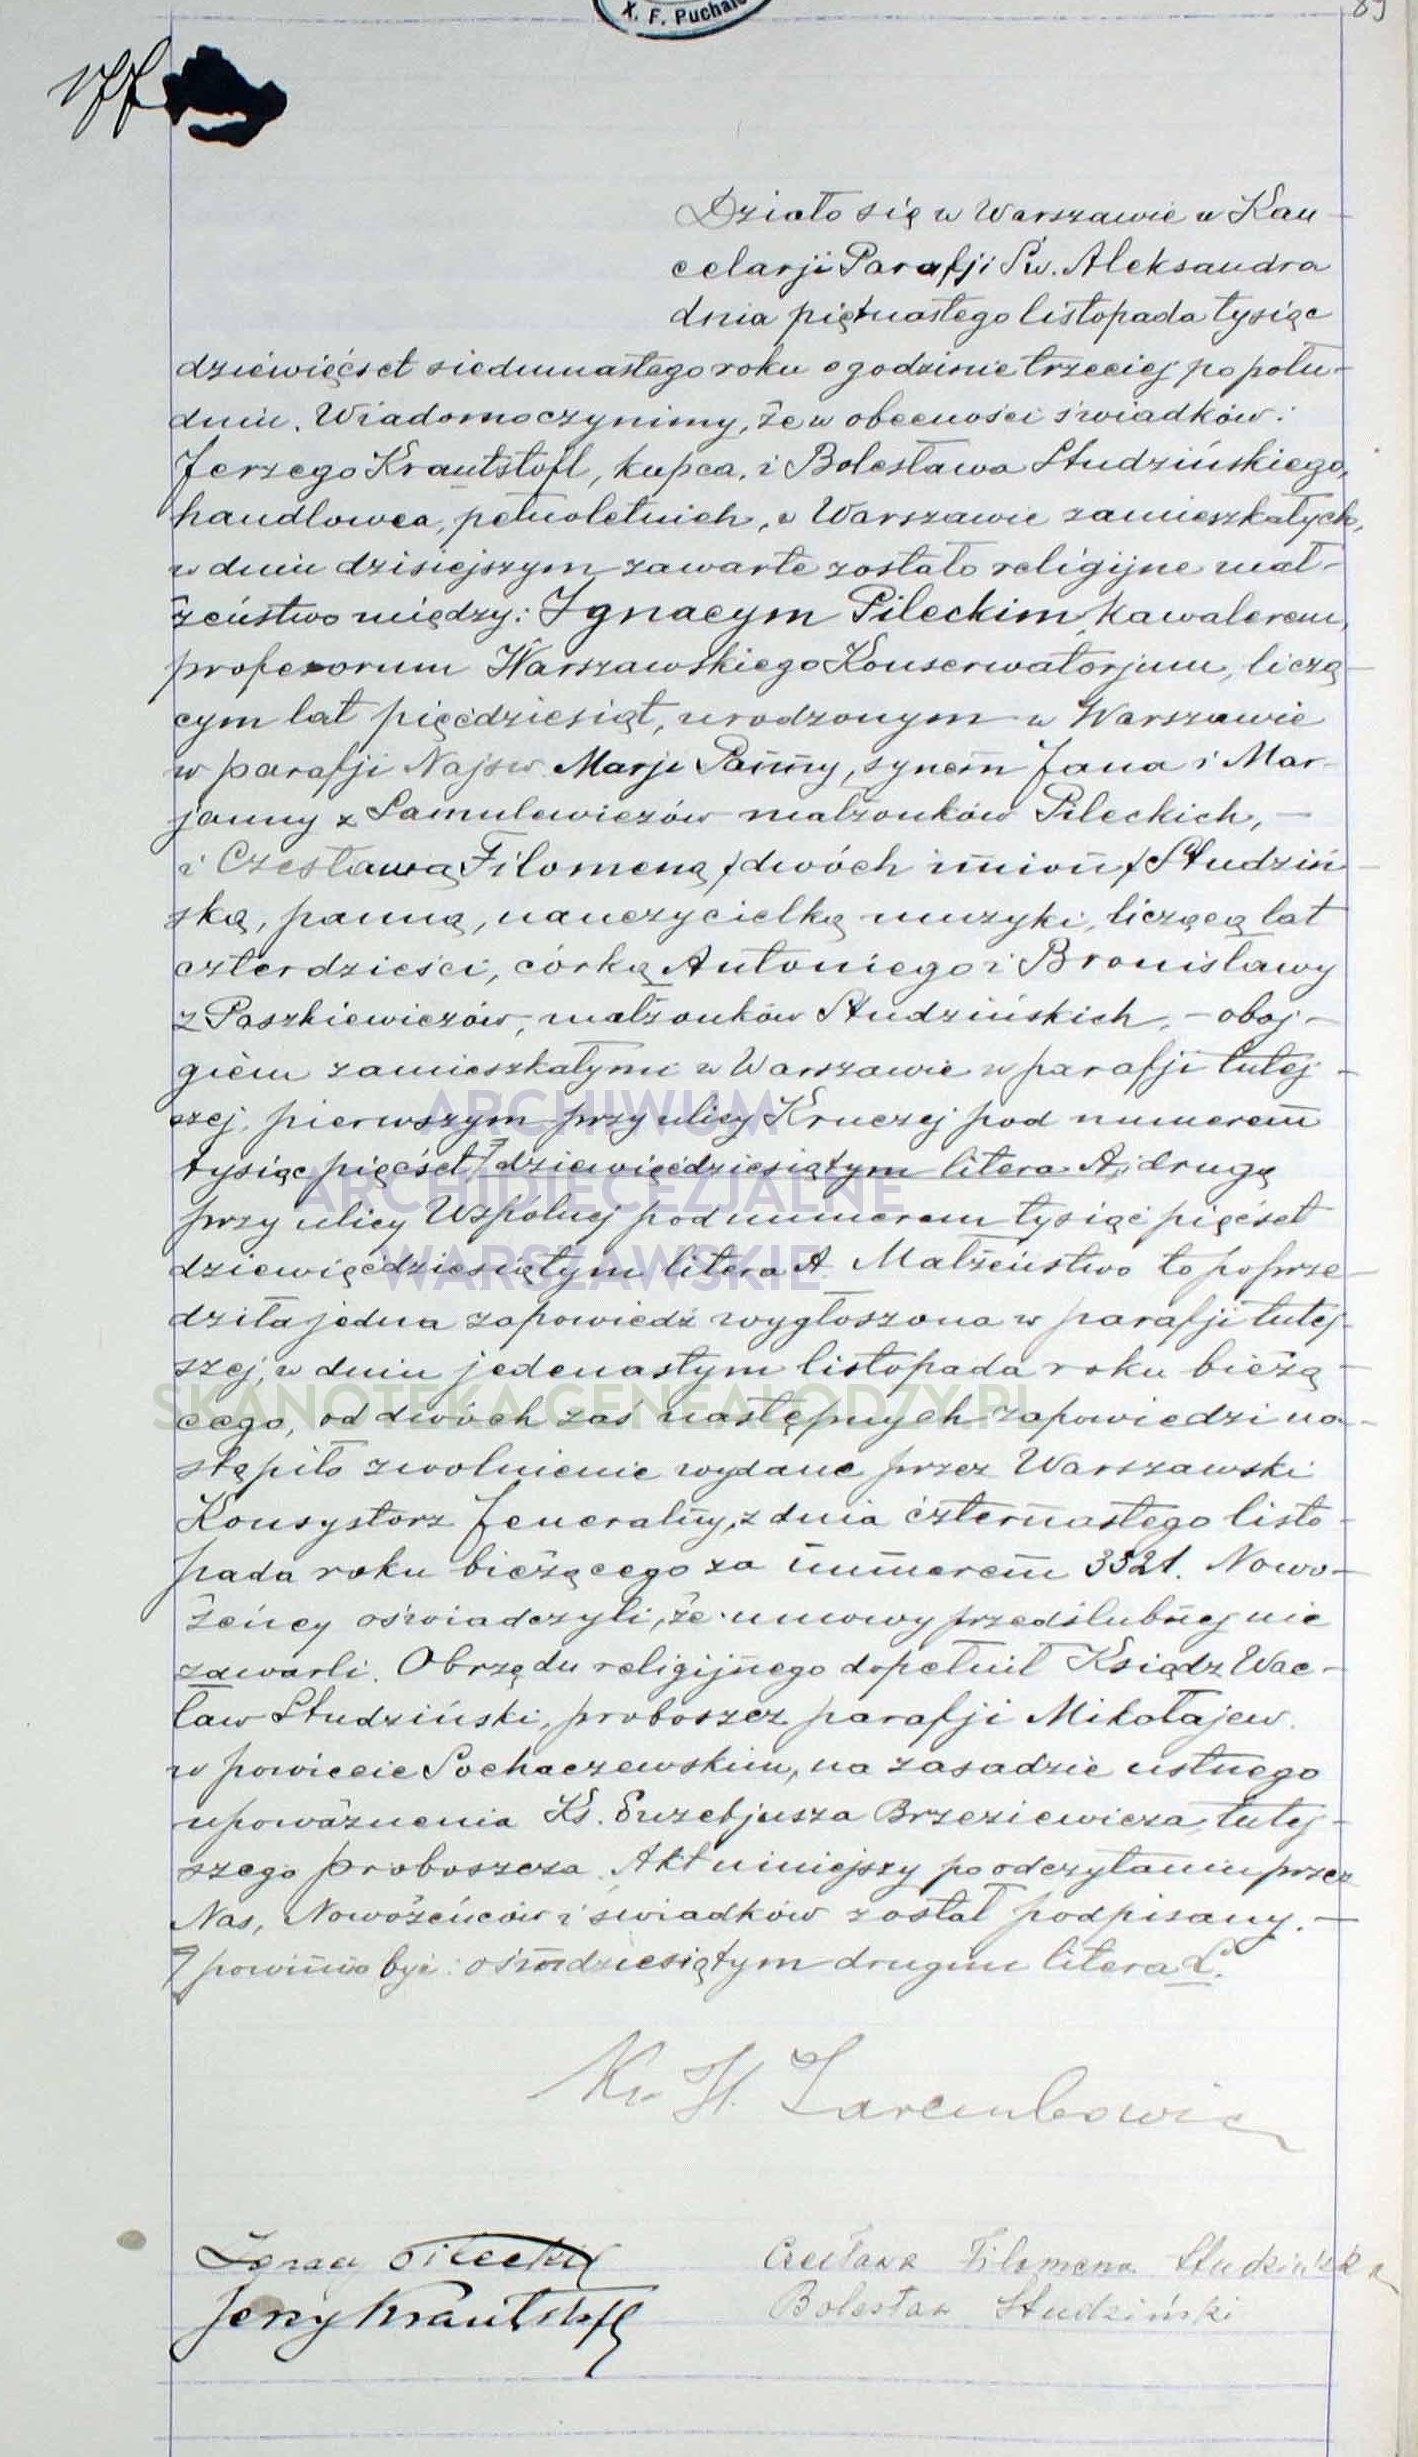 X. F. Puchal
89
177
Działo się w Warszawie w Kan-
celarji Parafji Św. Aleksandra
dnia piętnastego listopada tysiąc
dziewięćset siedmnastego roku o godzinie trzeciej po połu-
dniu. Wiadomo czynimy, że w obecności świadków:
Jerzego Krautstofl, kupca, i Bolesława Studzińskiego,
handlowca, pełnoletnich, w Warszawie zamieszkałych,
w dniu dzisiejszym zawarte zostało religijne mał-
żeństwo między: Ignacym Pileckim, kawalerem,
profesorum Warszawskiego Konserwatorjum, liczą-
cym lat pięćdziesiąt, urodzonym w Warszawie
w parafji Najśw. Marji Panny, synem Jana i Mar-
janny z Samulewiczów małżonków Pileckich, —
i Czesławą Filomeną /dwóch imion/ Studziń-
ską, panną, nauczycielką muzyki, liczącą lat
czterdzieści, córką Antoniego i Bronisławy
z Paszkiewiczów, małżonków Studzińskich, — oboj-
giem zamieszkałymi w Warszawie w parafji tutej-
szej, pierwszym przy ulicy Kruczej pod numerem
tysiąc pięćset dziewięćdziesiątym litera A, drugą
przy ulicy Wspólnej pod numerem tysiąc pięćset
dziewięćdziesiątym litera A. Małżeństwo to poprze-
dziła jedna zapowiedź wygłoszona w parafji tutej-
szej, w dniu jedenastym listopada roku bieżą-
cego, od dwóch zaś następnych zapowiedzi na-
stąpiło zwolnienie wydane przez Warszawski
Konsystorz Jeneralny, z dnia czternastego listo-
pada roku bieżącego za numerem 3521. Nowo-
żeńcy oświadczyli, że umowy przedślubnej nie
zawarli. Obrzędu religijnego dopełnił Ksiądz Wac-
ław Studziński, proboszcz parafji Mikołajew
w powiecie Sochaczewskim, na zasadzie ustnego
upoważnenia Ks. Euzebjusza Brzeziewicza, tutej-
szego proboszcza. Akt niniejszy po odczytaniu przez
Nas, Nowożeńców i świadków został podpisany. —
powinno być: ośmdziesiątym drugim litera L.
Ks. H. Zarembowicz
Ignacy Pilecki
Czesława Filomena Studzińska
Jerzy Krautstofl
Bolesław Studziński
ARCHIWUM
ARCHIDIECEZJALNE
WARSZAWSKIE
SKANOTEKA.GENEALODZY.PL